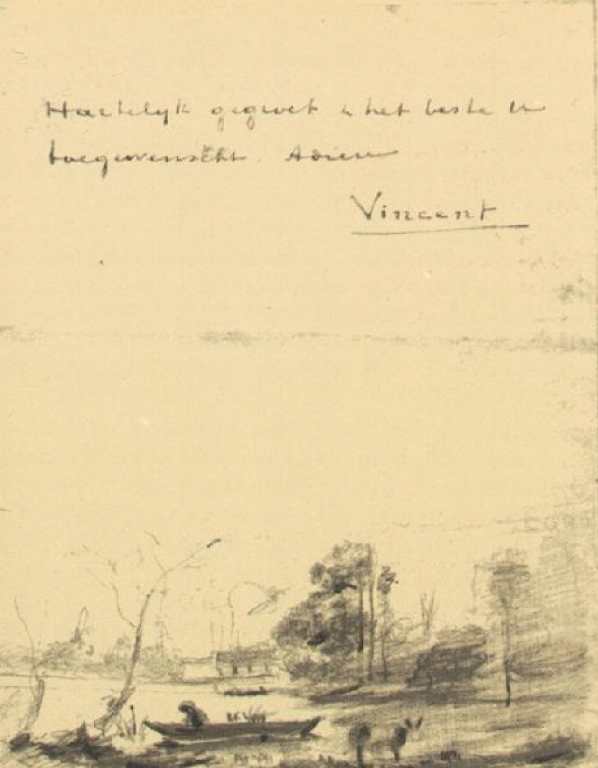 Hartelijk gegroet & het beste U
toegewenscht. Adieu
Vincent